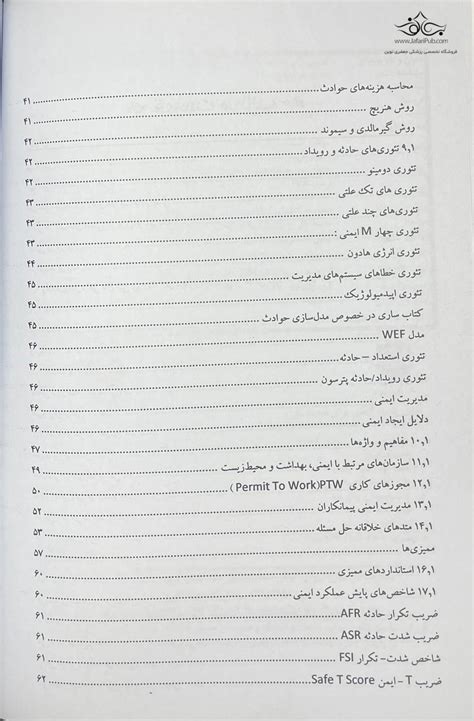 www.JafariPub.com
فروشگاه تخصصی پزشکی جعفری نوین
محاسبه هزینه‌های حوادث ۴۱
روش هنریچ ۴۱
روش گیرمالدی و سیموند ۴۲
۹٫۱ تئوری‌های حادثه و رویداد ۴۲
تئوری دومینو ۴۲
تئوری های تک علتی ۴۳
تئوری‌های چند علتی ۴۳
تئوری چهار M ایمنی : ۴۳
تئوری انرژی هادون ۴۴
تئوری خطاهای سیستم‌های مدیریت ۴۵
تئوری اپیدمیولوژیک ۴۵
کتاب ساری در خصوص مدل‌سازی حوادث ۴۵
مدل WEF ۴۶
تئوری استعداد – حادثه ۴۶
تئوری رویداد/حادثه پترسون ۴۶
مدیریت ایمنی ۴۶
دلایل ایجاد ایمنی ۴۶
۱۰٫۱ مفاهیم و واژه‌ها ۴۷
۱۱٫۱ سازمان‌های مرتبط با ایمنی، بهداشت و محیط‌زیست ۴۹
۱۲٫۱ مجوزهای کاری PTW(Permit To Work) ۵۰
۱۳٫۱ مدیریت ایمنی پیمانکاران ۵۲
۱۴٫۱ متدهای خلاقانه حل مسئله ۵۳
ممیزی‌ها ۵۷
۱۶٫۱ استانداردهای ممیزی ۶۰
۱۷٫۱ شاخص‌های پایش عملکرد ایمنی ۶۰
ضریب تکرار حادثه AFR ۶۱
ضریب شدت حادثه ASR ۶۱
شاخص شدت– تکرار FSI ۶۱
ضریب T – ایمن Safe T Score ۶۲